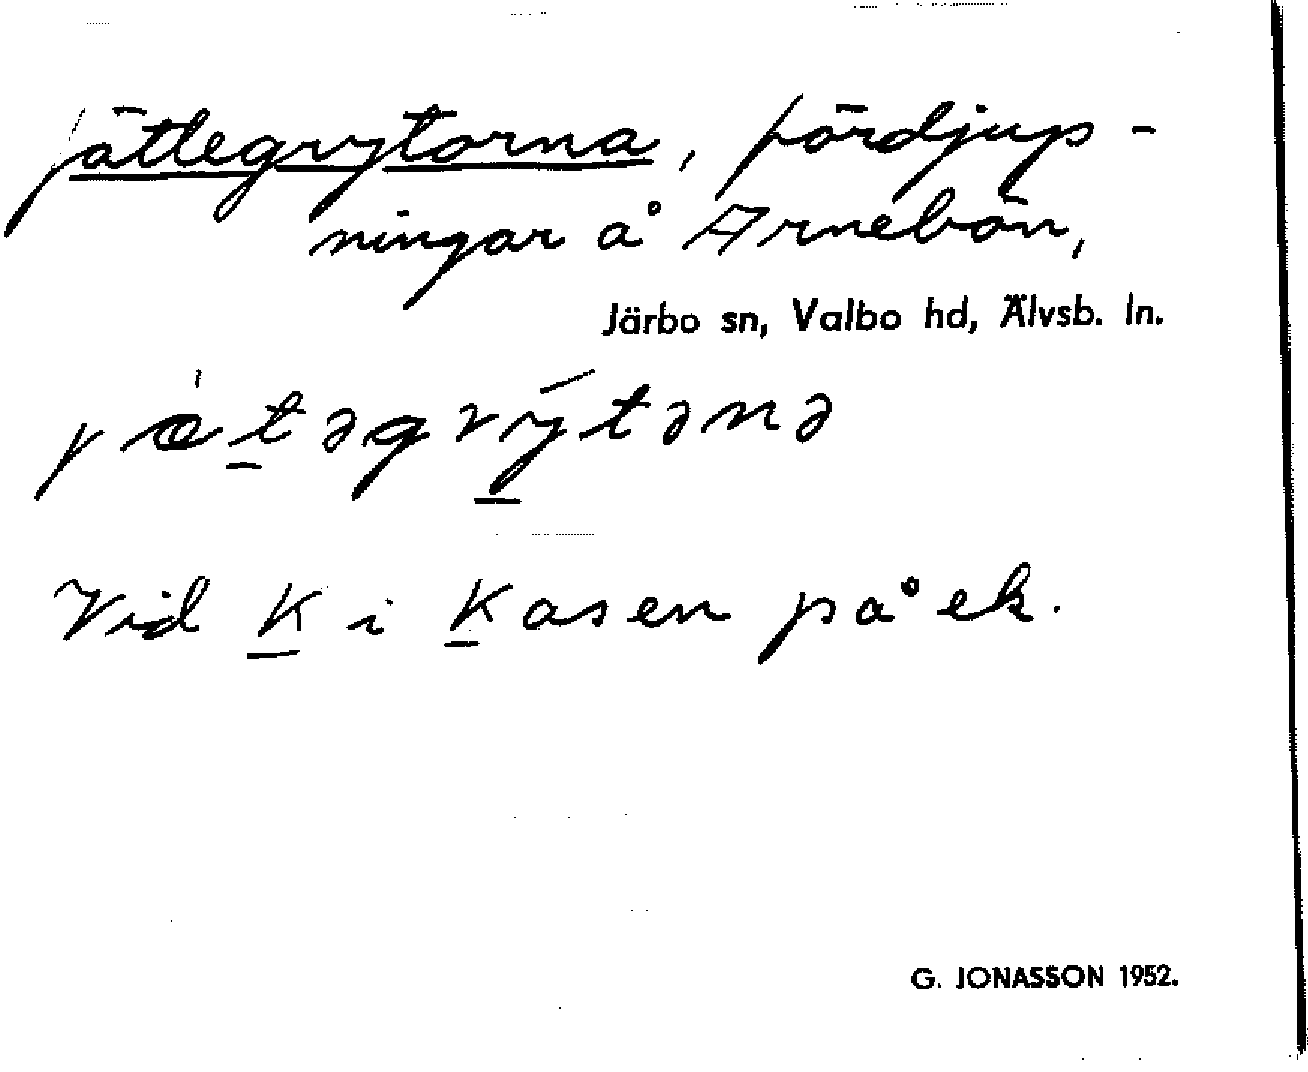 jättegrytorna, fördjup-
ningar å Arnebön,
Järbo sn, Valbo hd, Älvsb. ln.
Vid K i Kasen på ek.
G. JONASSON 1952.